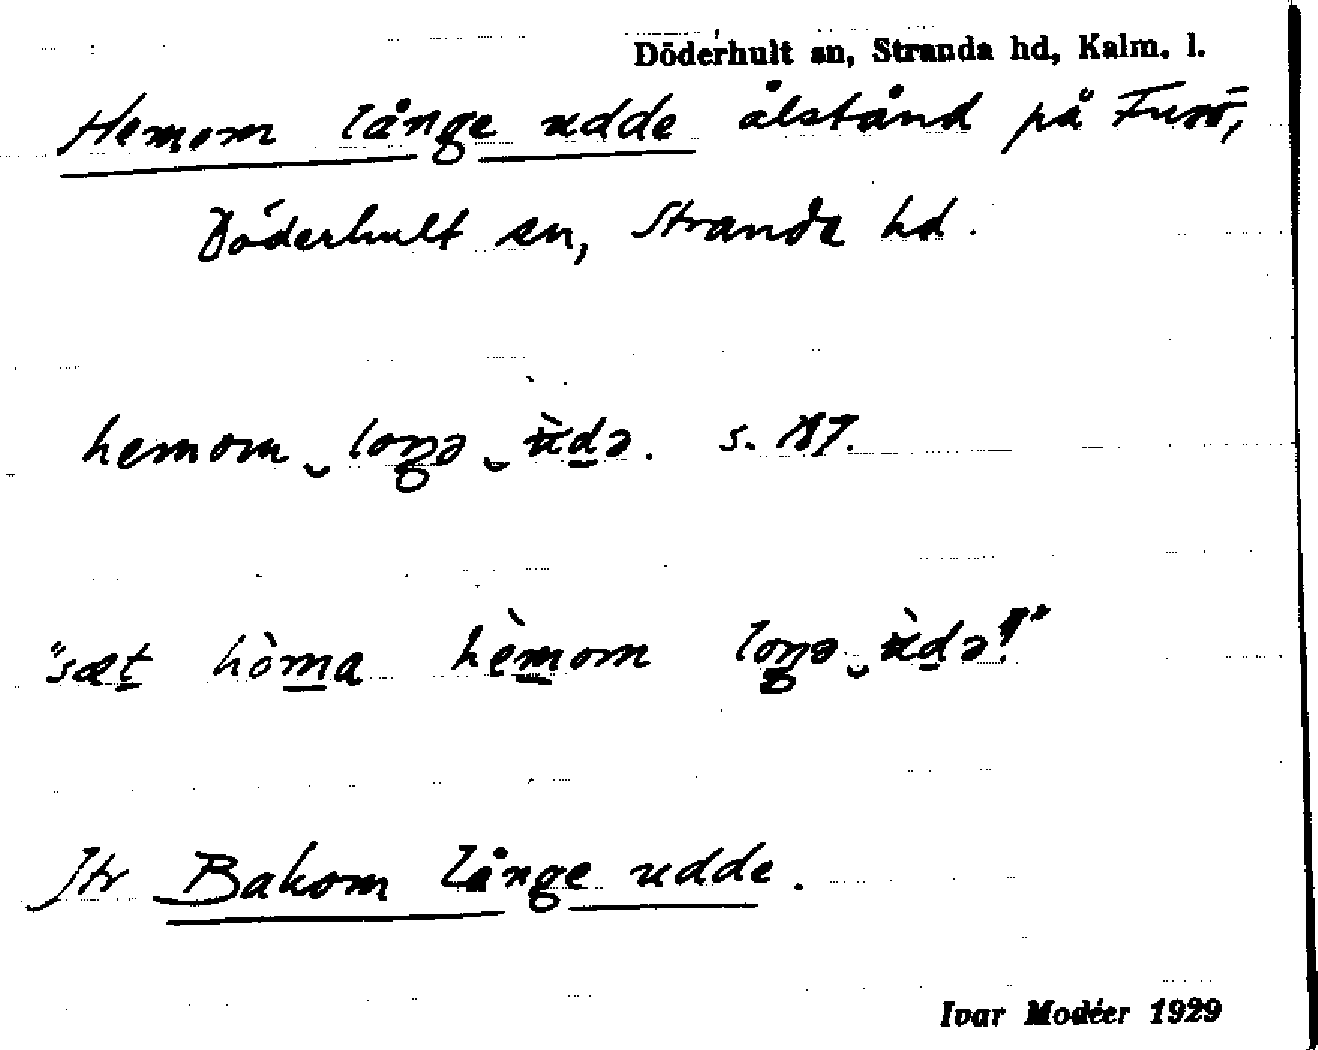 Döderhult sn, Stranda hd, Kalm. l.
Hemom långe udde ålstånd på Furö,
Döderhult sn, Stranda hd.
hemom‿loŋə‿ùdə. s. 187.
"sæt hòma hèmom loŋə‿ùdə!"
Jtr Bakom långe udde.
Ivar Modéer 1929